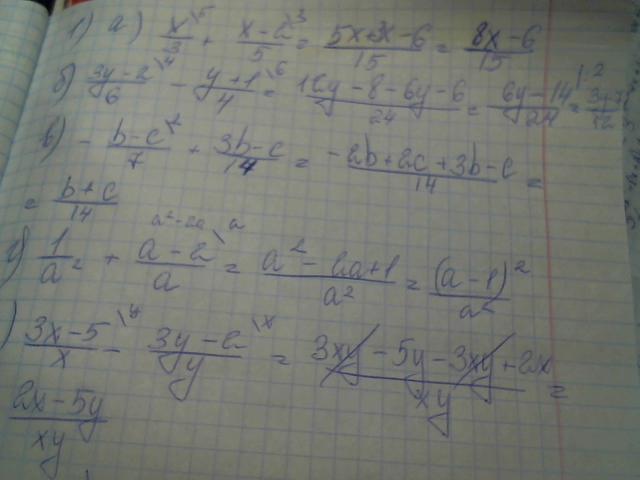 1) а) x/3 \5 + x-2/5 \3 = 5x+3x-6/15 = 8x-6/15
б) 3y-2/6 \4 - y+1/4 \6 = 12y-8-6y-6/24 = 6y-14/24 |:2 = 3y-7/12
в) - b-c/7 \2 + 3b-c/14 = -2b+2c+3b-c/14 =
= b+c/14
a²-2a
г) 1/a² + a-2/a \a = a²-2a+1/a² = (a-1)²/a²
) 3x-5/x \y - 3y-2/y \x = 3xy-5y-3xy+2x/xy =
2x-5y/xy